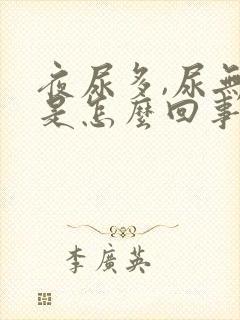 夜尿多,尿無
是怎麼回事
李廣英